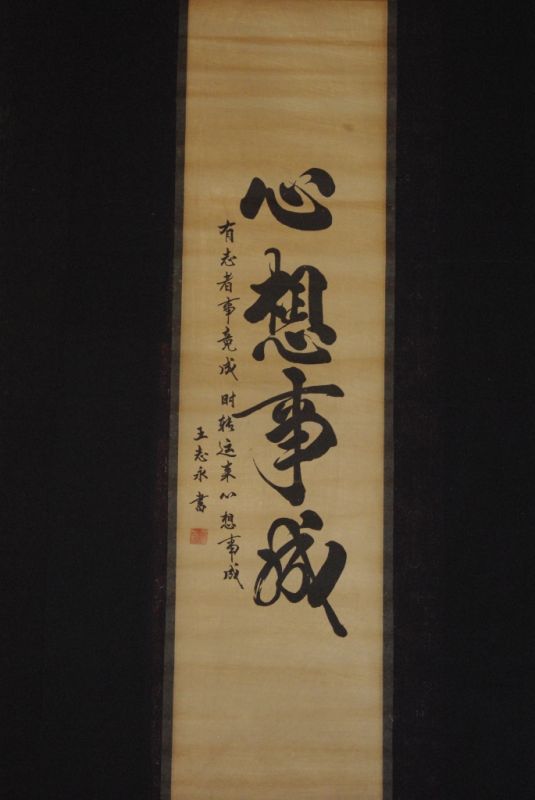 心想事成
有志者事竟成 时转运来心想事成
王志永书